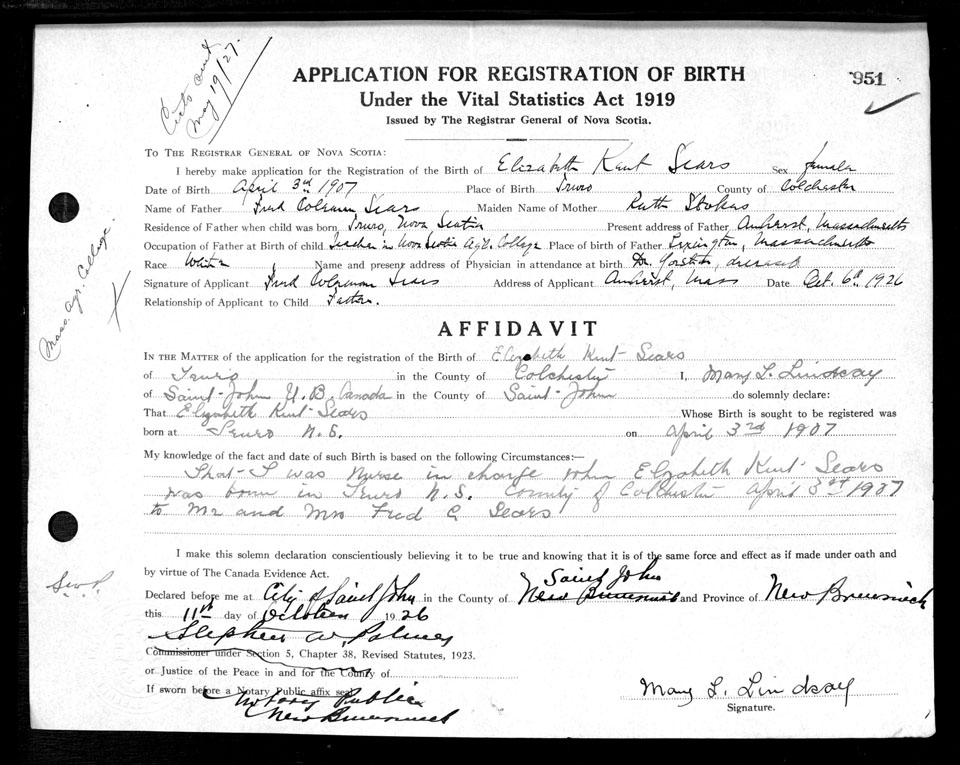 May 19/27.
951
APPLICATION FOR REGISTRATION OF BIRTH
Under the Vital Statistics Act 1919
Issued by The Registrar General of Nova Scotia.
TO THE REGISTRAR GENERAL OF NOVA SCOTIA:
I hereby make application for the Registration of the Birth of Elizabeth Kent Sears Sex female
Date of Birth April 3rd 1907 Place of Birth Truro County of Colchester
Name of Father Fred Coleman Sears Maiden Name of Mother Ruth Stokes
Residence of Father when child was born Truro, Nova Scotia Present address of Father Amherst, Massachusetts
Occupation of Father at Birth of child Teacher in Nova Scotia Agr. College Place of birth of Father Massachusetts
Race White Name and present address of Physician in attendance at birth Dr. Yorston, deceased
Signature of Applicant Fred Coleman Sears Address of Applicant Amherst, Mass Date Oct. 6th 1926
Relationship of Applicant to Child Father.
Mass. Agr. College
AFFIDAVIT
IN THE MATTER of the application for the registration of the Birth of Elizabeth Kent Sears
of Truro in the County of Colchester I, Mary L. Lindsay
of Saint John N.B. Canada in the County of Saint John do solemnly declare:
That Elizabeth Kent Sears Whose Birth is sought to be registered was
born at Truro N.S. on April 3rd 1907
My knowledge of the fact and date of such Birth is based on the following Circumstances:—
That I was Nurse in charge when Elizabeth Kent Sears
was born in Truro N.S. County of Colchester April 3rd 1907
to Mr and Mrs Fred C. Sears
I make this solemn declaration conscientiously believing it to be true and knowing that it is of the same force and effect as if made under oath and
by virtue of The Canada Evidence Act.
Saint John
Declared before me at City of Saint John in the County of New Brunswick and Province of New Brunswick
this 11th day of October 1926
Stephen W. Palmer
Commissioner under Section 5, Chapter 38, Revised Statutes, 1923.
or Justice of the Peace in and for the County of
If sworn before a Notary Public affix seal
Notary Public
New Brunswick
Mary L. Lindsay
Signature.